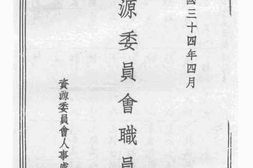 國三十四年四月
源委員會職員
資源委員會人事處